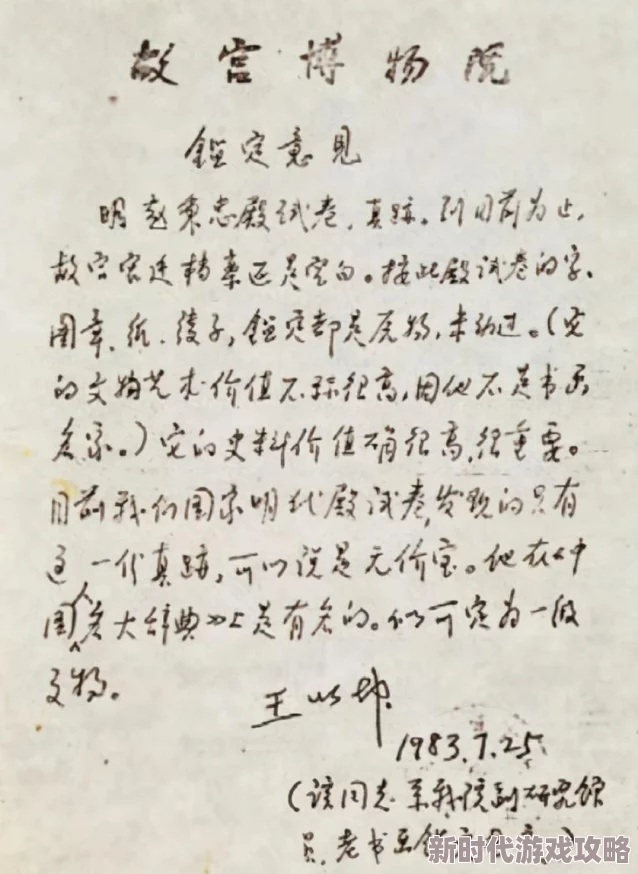 故宫博物院
鑑定意见
明赵秉忠殿试卷,真跡。到目前为止,
故宫宫廷档案还是空白。按此殿试卷的字、
图章、纸、绫子,鑑定都是原物,未动过。(它
的文物艺术价值不称很高,因他不是书画
名家。)它的史料价值确很高,很重要。
目前我们国家明代殿试卷,发现的只有
这一件真跡,可以说是无价宝。他在《中
国人名大辞典》上是有名的。似可定为一级
文物。
王以坤
1983.7.25
(该同志系我院副研究馆
员,老书画鉴定
新时代游戏攻略